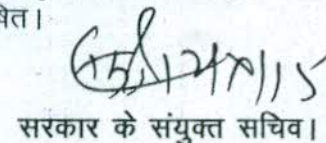 षित।
सरकार के संयुक्त सचिव।